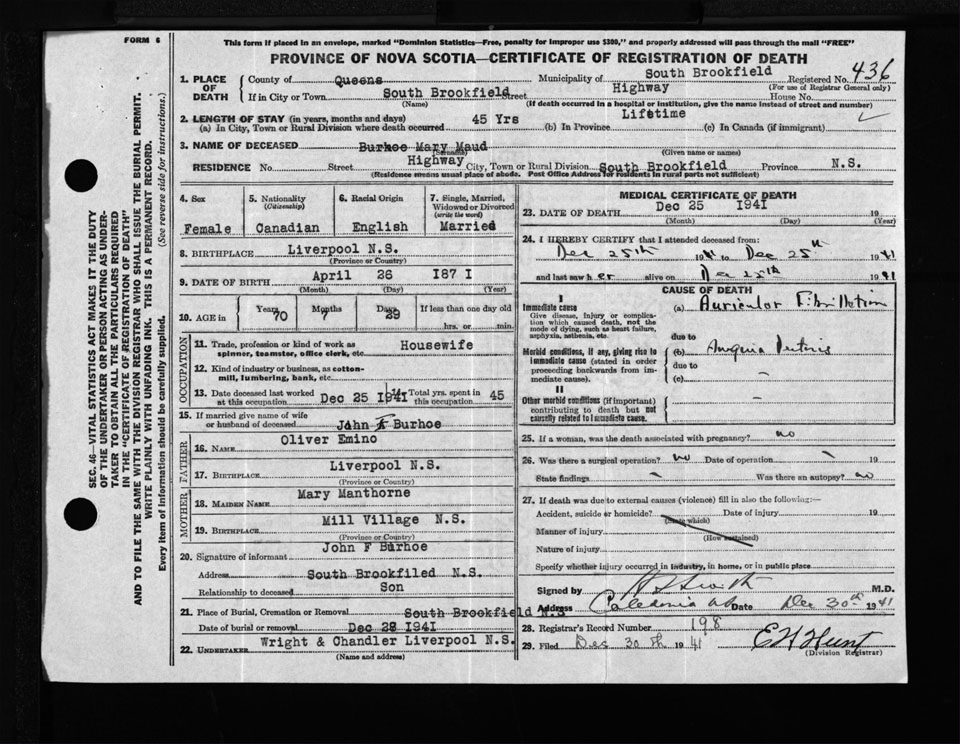 FORM 6
This form if placed in an envelope, marked "Dominion Statistics—Free, penalty for improper use $300," and properly addressed will pass through the mail "FREE"
PROVINCE OF NOVA SCOTIA—CERTIFICATE OF REGISTRATION OF DEATH
SEC. 46—VITAL STATISTICS ACT MAKES IT THE DUTY
OF THE UNDERTAKER OR PERSON ACTING AS UNDER-
TAKER TO OBTAIN ALL THE PARTICULARS REQUIRED
IN THE "CERTIFICATE OF REGISTRATION OF DEATH"
AND TO FILE THE SAME WITH THE DIVISION REGISTRAR WHO SHALL ISSUE THE BURIAL PERMIT.
WRITE PLAINLY WITH UNFADING INK. THIS IS A PERMANENT RECORD.
Every item of information should be carefully supplied. (See reverse side for instructions.)
1. PLACE OF DEATH
County of Queens Municipality of South Brookfield Registered No. 436
(For use of Registrar General only)
If in City or Town South Brookfield Street Highway House No.
(Name) (If death occurred in a hospital or institution, give the name instead of street and number)
2. LENGTH OF STAY (in years, months and days)
(a) In City, Town or Rural Division where death occurred 45 Yrs (b) In Province Lifetime (c) In Canada (if immigrant)
3. NAME OF DECEASED Burhoe Mary Maud
(Surname) (Given name or names)
RESIDENCE No. Street Highway City, Town or Rural Division South Brookfield Province N.S.
(Residence means usual place of abode. Post Office Address for residents in rural parts not sufficient)
4. Sex Female
5. Nationality (Citizenship) Canadian
6. Racial Origin English
7. Single, Married, Widowed or Divorced (write the word) Married
8. BIRTHPLACE Liverpool N.S.
(Province or Country)
9. DATE OF BIRTH April 26 I87 I
(Month) (Day) (Year)
10. AGE in Years 70 Months 7 Days 29 If less than one day old
hrs. or min.
OCCUPATION
11. Trade, profession or kind of work as spinner, teamster, office clerk, etc. Housewife
12. Kind of industry or business, as cotton-mill, lumbering, bank, etc.
13. Date deceased last worked at this occupation Dec 25 I941 14. Total yrs. spent in this occupation 45
15. If married give name of wife or husband of deceased John F Burhoe
FATHER
16. NAME Oliver Emino
17. BIRTHPLACE Liverpool N.S.
(Province or Country)
MOTHER
18. MAIDEN NAME Mary Manthorne
19. BIRTHPLACE Mill Village N.S.
(Province or Country)
20. Signature of informant John F Burhoe
Address South Brookfiled N.S.
Relationship to deceased Son
21. Place of Burial, Cremation or Removal South Brookfield N.S
Date of burial or removal Dec 28 I94I
22. UNDERTAKER Wright & Chandler Liverpool N.S.
(Name and address)
MEDICAL CERTIFICATE OF DEATH
23. DATE OF DEATH Dec 25 I94I 19
(Month) (Day) (Year)
24. I HEREBY CERTIFY that I attended deceased from:
Dec 25th 1941 to Dec 25th 1941
and last saw her alive on Dec 25th 1941
CAUSE OF DEATH
I
Immediate cause
Give disease, injury or complication which caused death, not the mode of dying, such as heart failure, asphyxia, asthenia, etc.
(a) Auricular Fibrillation
due to
Morbid conditions, if any, giving rise to immediate cause (stated in order proceeding backwards from immediate cause).
(b) Angina Pectoris
due to
(c) -
II
Other morbid conditions (if important) contributing to death but not causally related to immediate cause. -
25. If a woman, was the death associated with pregnancy? no
26. Was there a surgical operation? no Date of operation - 19
State findings - Was there an autopsy? no
27. If death was due to external causes (violence) fill in also the following:—
Accident, suicide or homicide? Date of injury 19
(State which)
Manner of injury
(How sustained)
Nature of injury
Specify whether injury occurred in industry, in home, or in public place
Signed by M.D.
Address Caledonia Date Dec 30th 1941
28. Registrar's Record Number 198
29. Filed Dec 30th 1941 E H Hunt
(Division Registrar)